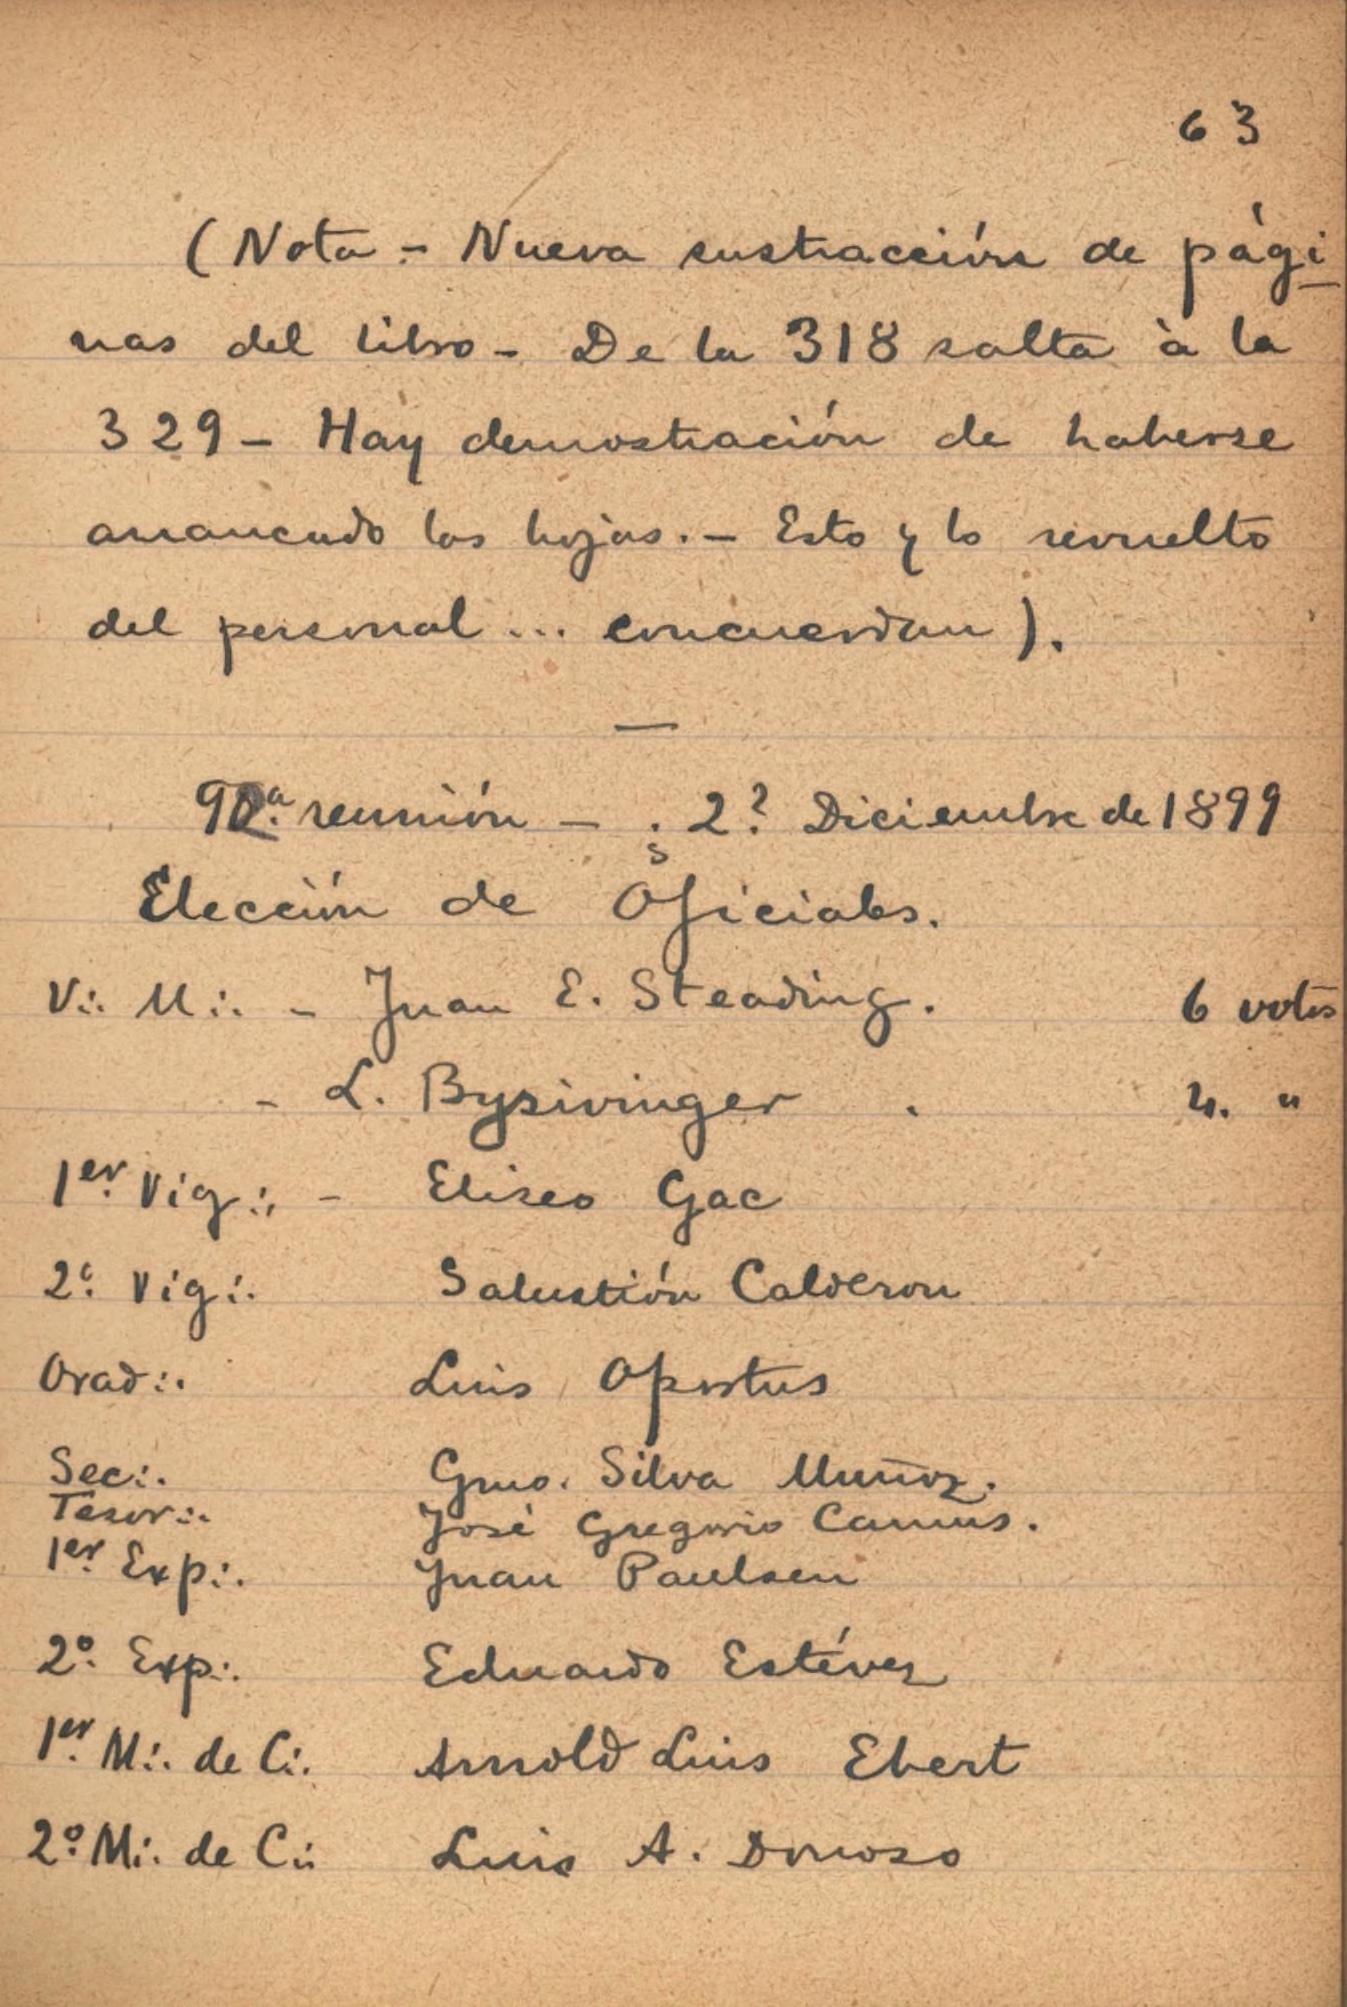 63
(Nota - Nueva sustracción de pági
nas del libro - De la 318 salta à la
329 - Hay demostración de haberse
arrancado las hojas. - Esto y lo revuelto
del personal ... concuerdan ).
—
reunión - 2? Diciembre de 1899
Elección de Oficiales.
V∴ M∴ - Juan E. Steading. 6 votos
- L. Bysivinger . "
1er. Vig∴ - Eliseo Gac
2º. Vig∴ Salustión Calderon
Orad∴ Luis Oportus
Sec∴ Gmo. Silva Muñoz.
Tesor∴ José Gregorio Camus.
1er. Exp∴ Juan Paulsen
2º. Exp∴ Eduardo Estévez
1er. M∴ de C∴ Arnold Luis Ebert
2º. M∴ de C∴ Luis A. Donoso